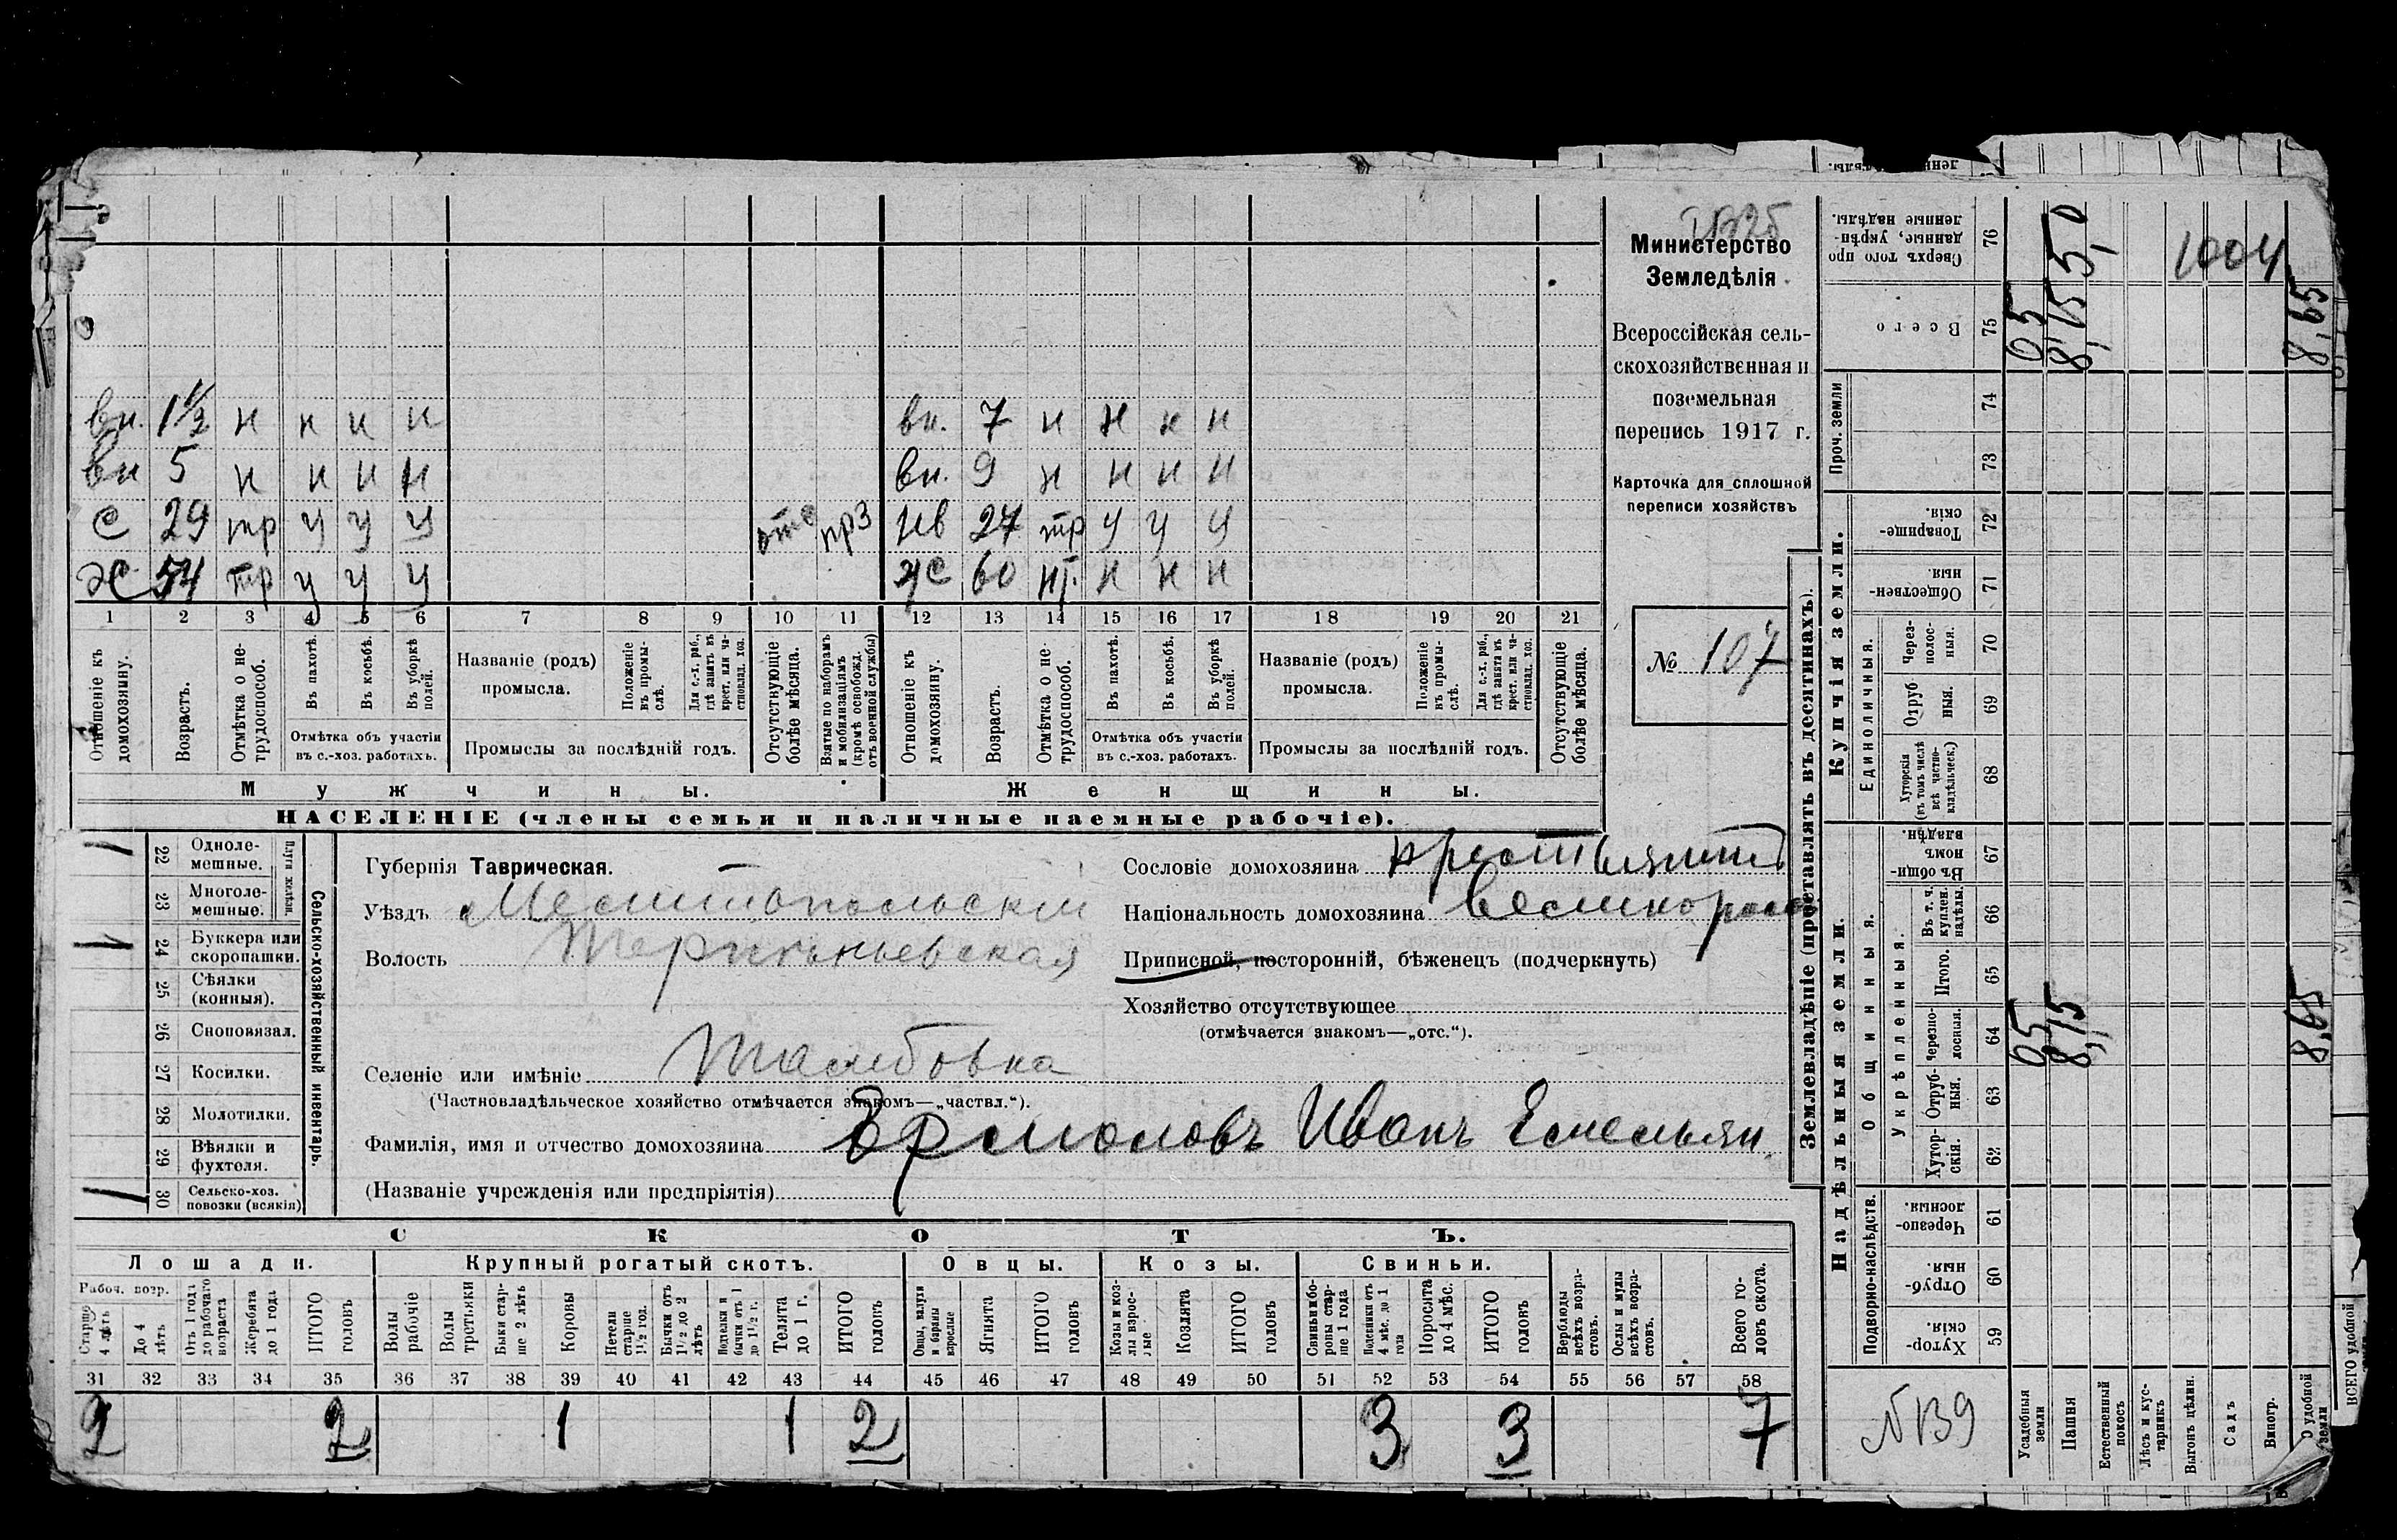 1004
Министерство
Земледѣлія
Всероссійская сель-
скохозяйственная и
поземельная
перепись 1917 г.
Карточка для сплошной
переписи хозяйствъ
№ 107
вн. 1½ н н н н
вн 5 н н н н
С 29 тр у у у отс прз
Х 54 тр у у у
вн. 7 н н н н
вн. 9 н н н н
нв 27 тр у у у
ж 60 нт. н н н
1 2 3 4 5 6 7 8 9 10 11 12 13 14 15 16 17 18 19 20 21
Отношеніе къ домохозяину.
Возрастъ.
Отмѣтка о не-трудоспособ.
Въ пахотѣ.
Въ косьбѣ.
Въ уборкѣ полей.
Отмѣтка объ участіи
въ с.-хоз. работахъ.
Названіе (родъ)
промысла.
Положеніе въ промы-слѣ.
Для с.-х. раб., гдѣ занятъ въ крест. или ча-стновлад. хоз.
Промыслы за послѣдній годъ.
Отсутствующіе болѣе мѣсяца.
Взятые по наборамъ и мобилизаціямъ (кромѣ освобожд. отъ военной службы)
Отношеніе къ домохозяину.
Возрастъ.
Отмѣтка о не-трудоспособ.
Въ пахотѣ.
Въ косьбѣ.
Въ уборкѣ полей.
Отмѣтка объ участіи
въ с.-хоз. работахъ.
Названіе (родъ)
промысла.
Положеніе въ промы-слѣ.
Для с.-х. раб., гдѣ занята въ крест. или ча-стновлад. хоз.
Промыслы за послѣдній годъ.
Отсутствующіе болѣе мѣсяца.
Мужчины.
Женщины.
НАСЕЛЕНІЕ (члены семьи и наличные наемные рабочіе).
Сельско-хозяйственный инвентарь.
Плуги желѣзн.
1 22 Одноле-мешные.
23 Многоле-мешные.
1 24 Буккера или скоропашки.
25 Сѣялки (конныя).
26 Сноповязал.
27 Косилки.
28 Молотилки.
29 Вѣялки и фухтеля.
1 30 Сельско-хоз. повозки (всякія)
Губернія Таврическая.
Уѣздъ Мелитопольскій
Волость Терпѣньевская
Селеніе или имѣніе Тамбовка
(Частновладѣльческое хозяйство отмѣчается знакомъ—„частвл.“).
Фамилія, имя и отчество домохозяина Ермоловъ Иванъ Емельян
(Названіе учрежденія или предпріятія)
Сословіе домохозяина крестьянинъ
Національность домохозяина великоросс
Приписной, посторонній, бѣженецъ (подчеркнуть)
Хозяйство отсутствующее
(отмѣчается знакомъ—„отс.“).
СКОТЪ.
Лошади.
Крупный рогатый скотъ.
Овцы.
Козы.
Свиньи.
Рабоч. возр.
Старше 4 лѣтъ
До 4 лѣтъ
Отъ 1 года до рабочаго возраста
Жеребята до 1 года
ИТОГО головъ
Волы рабочіе
Волы третьяки
Быки стар-ше 2 лѣтъ
Коровы
Нетели старше 1½ год.
Бычки отъ 1½ до 2 лѣтъ
Подтелки и бычки отъ 1 до 1½ г.
Телята до 1 г.
ИТОГО головъ
Овцы, валухи и бараны взрослые
Ягнята
ИТОГО головъ
Козы и коз-лы взрос-лые
Козлята
ИТОГО головъ
Свиньи и бо-ровы стар-ше 1 года
Подсвинки отъ 4 мѣс. до 1 года
Поросята до 4 мѣс.
ИТОГО головъ
Верблюды всѣхъ возра-стовъ.
Ослы и мулы всѣхъ возра-стовъ.
Всего го-ловъ скота.
31 32 33 34 35 36 37 38 39 40 41 42 43 44 45 46 47 48 49 50 51 52 53 54 55 56 57 58
2 2 1 1 2 3 3 7
Землевладѣніе (проставлять въ десятинахъ).
Надѣльныя земли.
Купчія земли.
Проч. земли
Подворно-наслѣдств.
Общинныя.
Укрѣпленныя.
Единоличныя.
59 Хутор-скія.
60 Отруб-ныя.
61 Черезпо-лосныя.
62 Хутор-скія.
63 Отруб-ныя.
64 Черезпо-лосныя.
65 Итого.
66 Въ т. ч. куплен. надѣлы.
67 Въ общи-номъ владѣн.
68 Хуторскія (въ томъ числѣ всѣ частно-владѣльческ.)
69 Отруб-ныя.
70 Через-полос-ныя.
71 Обществен-ныя.
72 Товарище-скія.
73
74
75 Всего
76 Сверхъ того про-данные, укрѣп-ленные надѣлы.
0,5 8,15 8,65
0,5 8,15 8,65
5,0
№ 139
Усадебныя земли
Пашня
Естественный покосъ
Лѣсъ и кус-тарникъ
Выгонъ цѣлин.
Садъ
Виногр.
удобной земли
ВСЕГО удобной